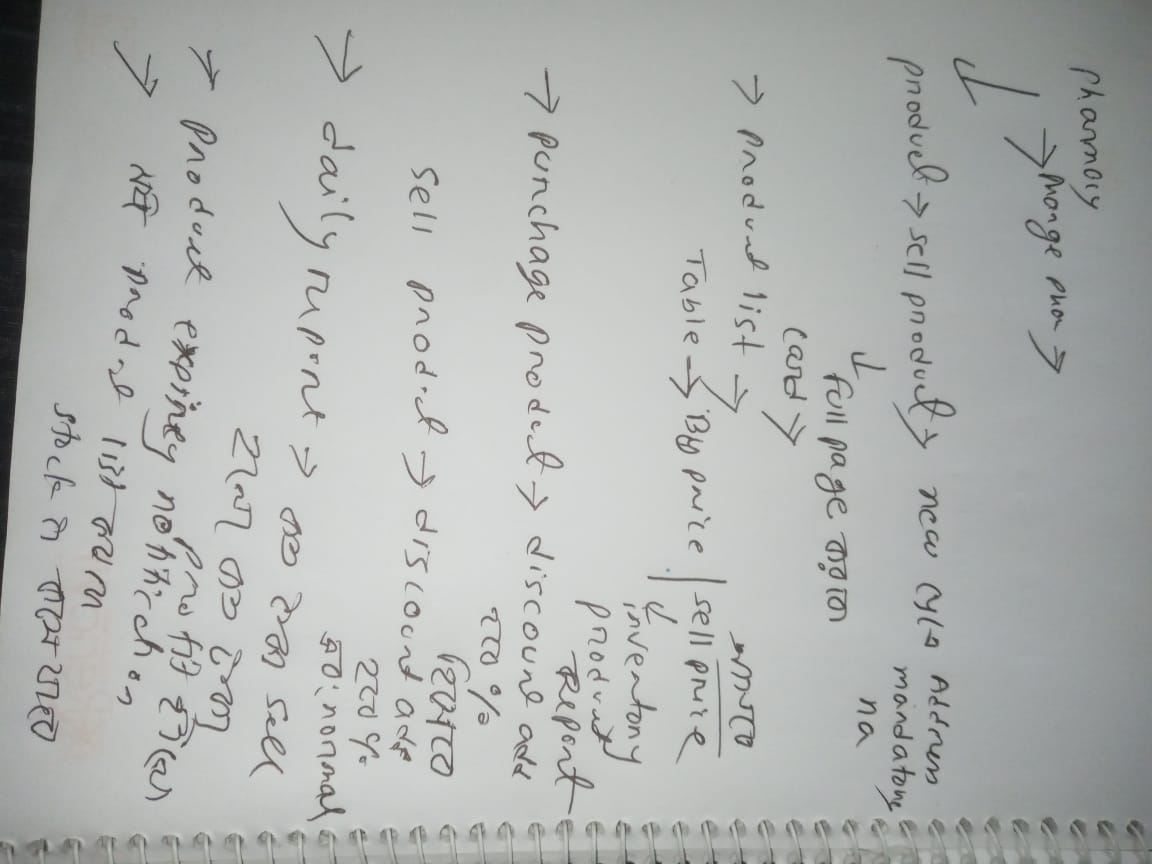 pharmacy
→ Mange phar →
↓
product → sell product → new Address
mandatory
na
↓
Full page করতে
card →
→ product list →
Table → By price | sell price
↓
inventory
product
Report
→ purchage product → discount add
হবে %
হিসেবে
sell product → discount add
হবে %
normal
→ daily report → কত টাকা sell
হলো কত টাকা
profit
→ product expirey notification
→ product list
stock এ কমে যাবে